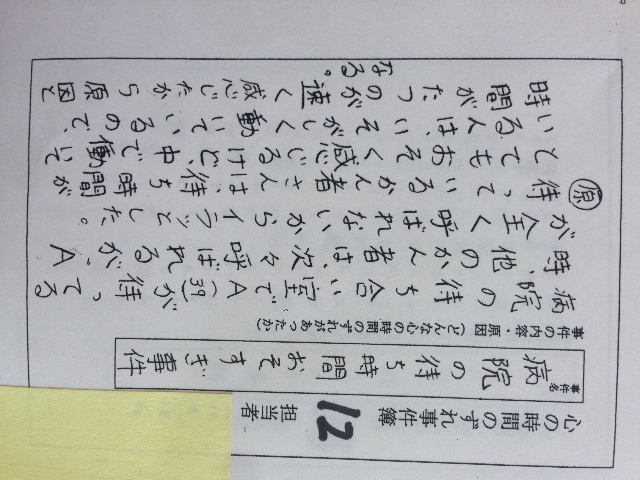 心の時間のずれ事件簿 12 担当者
事件名 病院の待ち時間おそすぎ事件
事件の内容・原因（どんな心の時間のずれがあったか）
病院の待ち合い室でA(39)が待ってる
時、他のかん者は、次々呼ばれるが、A
が全く呼ばれないからイラッとした。
原 待っているかん者さんは、待ち時間が
とてもおそく感じるけど、中で働いて
いる人は、いそがしく動いているので、
時間がたつのが速く感じたから原因と
なる。